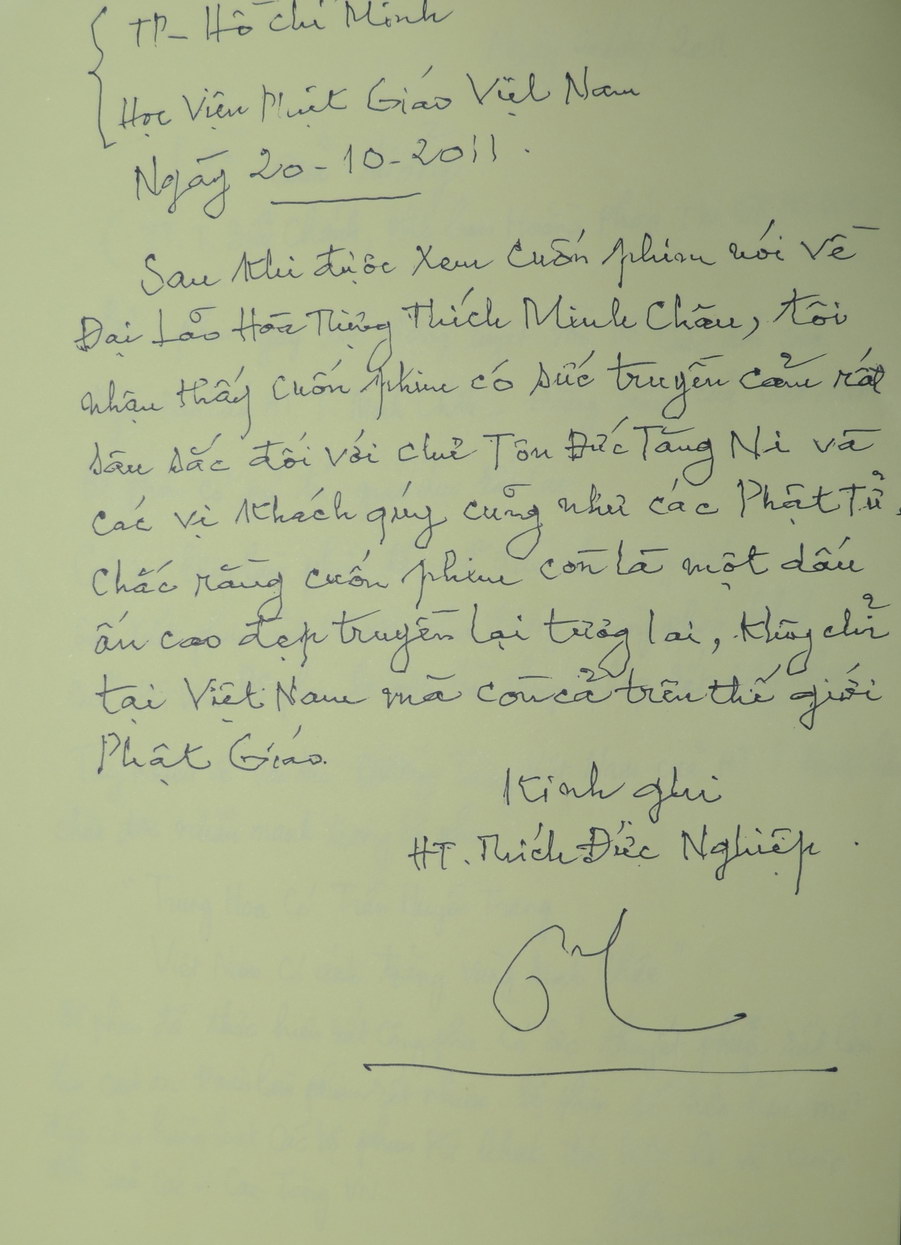 TP - Hồ Chí Minh
Học Viện Phật Giáo Việt Nam
Ngày 20-10-2011.
Sau khi được xem cuốn phim nói về
Đại Lão Hòa Thượng Thích Minh Châu, tôi
nhận thấy cuốn phim có sức truyền cảm rất
sâu sắc đối với chư Tôn Đức Tăng Ni và
các vị khách qúy cũng như các Phật Tử.
Chắc rằng cuốn phim còn là một dấu
ấn cao đẹp truyền lại tương lai, không chỉ
tại Việt Nam mà còn cả trên thế giới
Phật Giáo.
Kính ghi
HT. Thích Đức Nghiệp.